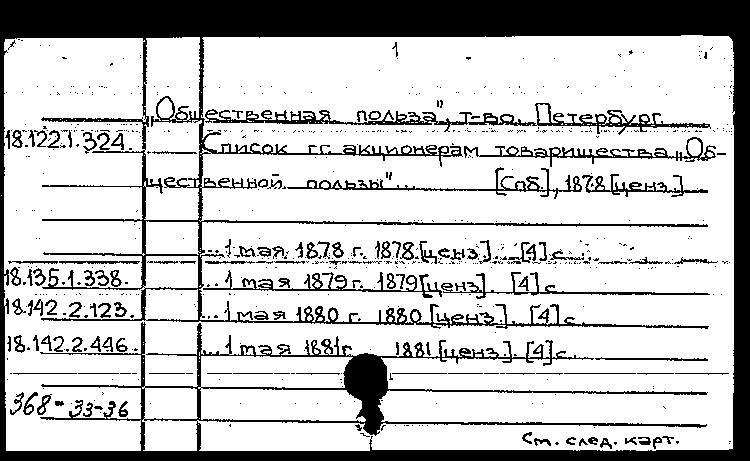 1
„Общественная польза", т-во. Петербург.
18.122.1.324. Список гг. акционерам товарищества „Об-
щественной пользы"... [Спб.], 1878 [ценз.]
...1 мая 1878 г. 1878 [ценз.]. [4] с.
18.135.1.338. ...1 мая 1879 г. 1879 [ценз.]. [4] с.
18.142.2.123. ...1 мая 1880 г. 1880 [ценз.]. [4] с.
18.142.2.446. ...1 мая 1881 г. 1881 [ценз.]. [4] с.
368-33-36
См. след. карт.